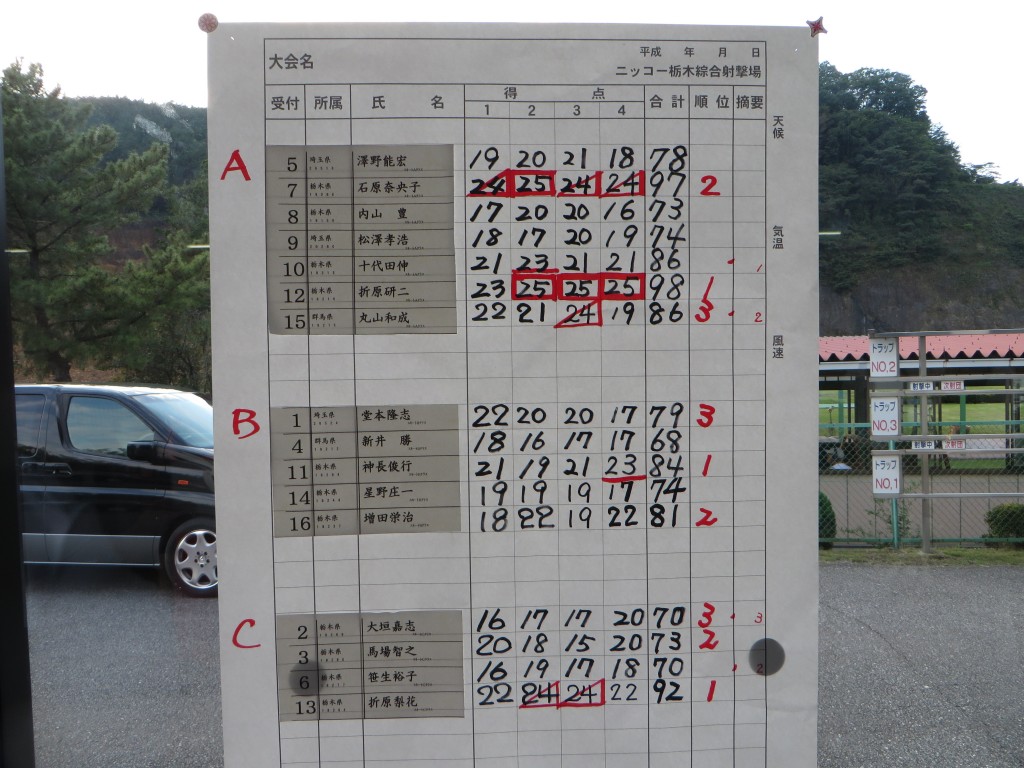 平成 年 月 日
大会名 ニッコー栃木綜合射撃場
受付 所属 氏 名 得 点 合計 順位 摘要
1 2 3 4
天候
気温
風速
A
5 埼玉県 澤野能宏 19 20 21 18 78
7 栃木県 石原奈央子 24 25 24 24 97 2
8 栃木県 内山 豊 17 20 20 16 73
9 埼玉県 松澤孝浩 18 17 20 19 74
10 栃木県 十代田伸 21 23 21 21 86 1
12 栃木県 折原研二 23 25 25 25 98 1
15 群馬県 丸山和成 22 21 24 19 86 3 2
B
1 埼玉県 堂本隆志 22 20 20 17 79 3
4 群馬県 新井 勝 18 16 17 17 68
11 栃木県 神長俊行 21 19 21 23 84 1
14 栃木県 星野庄一 19 19 19 17 74
16 栃木県 増田栄治 18 22 19 22 81 2
C
2 栃木県 大垣嘉志 16 17 17 20 70 3 3
3 栃木県 馬場智之 20 18 15 20 73 2
6 栃木県 笹生裕子 16 19 17 18 70 2
13 栃木県 折原梨花 22 24 24 22 92 1
トラップ
NO.2
射撃中 次射団
トラップ
NO.3
射撃中 次射団
トラップ
NO.1